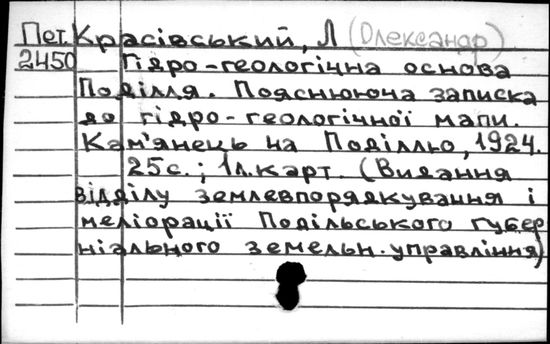 Пет. Красівський, Л (Олександр)
2450 Гідро-геологічна основа
Поділля. Пояснююча записка
до гідро-геологічної мапи.
Кам'янець на Поділлю, 1924.
25с.; 1л.карт. (Видання
відділу землевпорядкування і
меліорації Подільського губер
ніального земельн. управління)